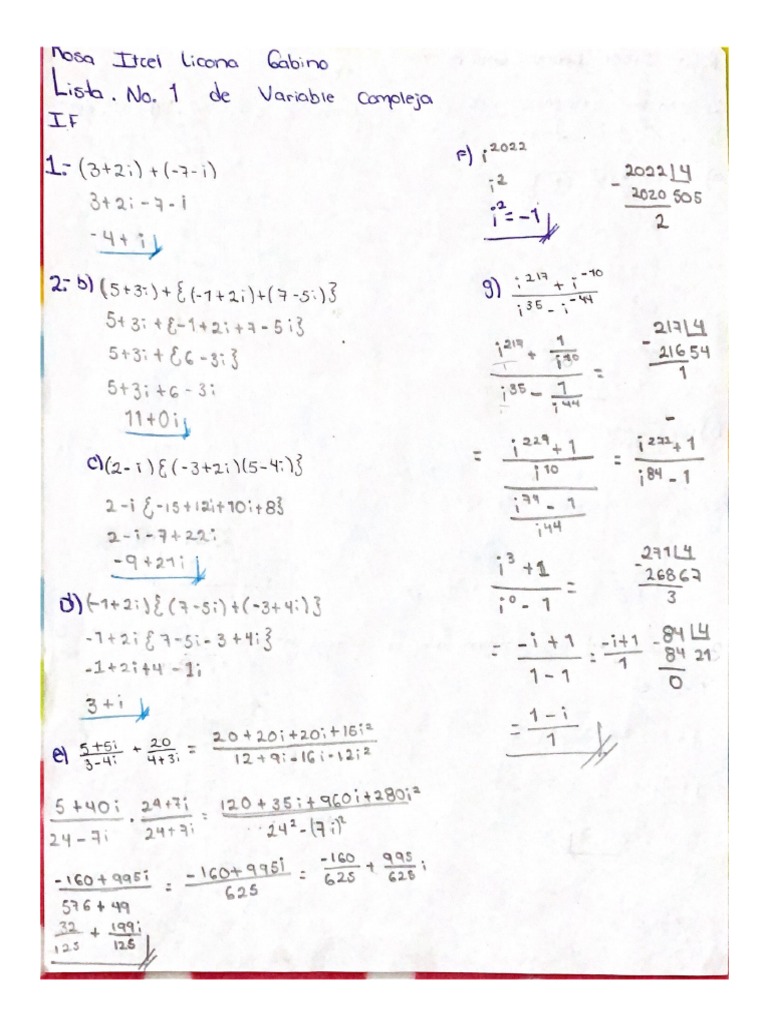 Rosa Itcel Licona Gabino
Lista. No. 1 de Variable Compleja
IF
1.- (3+2i)+(-7-i)
3+2i-7-i
-4+i
2.- b) (5+3i)+{(-1+2i)+(7-5i)}
5+3i+{-1+2i+7-5i}
5+3i+{6-3i}
5+3i+6-3i
11+0i
c) (2-i){(-3+2i)(5-4i)}
2-i{-15+12i+10i+8}
2-i-7+22i
-9+21i
d) (-1+2i){(7-5i)+(-3+4i)}
-1+2i{7-5i-3+4i}
-1+2i+4-1i
3+i
e) 5+5i/3-4i + 20/4+3i = 20+20i+20i+15i²/12+9i-16i-12i²
5+40i/24-7i · 24+7i/24+7i = 120+35i+960i+280i²/24²-(7i)²
-160+995i/576+49 = -160+995i/625 = -160/625 + 995/625 i
32/125 + 199i/125
F) i²⁰²²
i²
i²=-1
- 2022 4
2020 505
2
g) i²¹⁷+i⁻¹⁰/i³⁵-i⁻⁴⁴
i²¹⁷ + 1/i¹⁰ / i³⁵ - 1/i⁴⁴ =
- 217 4
216 54
1
-
= i²²⁹+1/i¹⁰ / i⁷⁹-1/i⁴⁴ = i²⁷¹+1/i⁸⁴-1
i³+1/i⁰-1 =
- 271 4
268 67
3
= -i+1/1-1 = -i+1/1
- 84 4
84 21
0
= 1-i/1